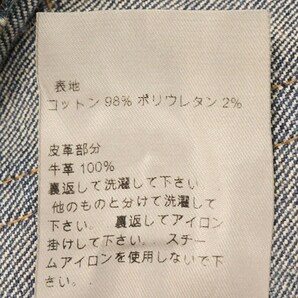 表地
コットン 98% ポリウレタン 2%
皮革部分
牛革 100%
裏返して洗濯して下さい
他のものと分けて洗濯して
下さい。 裏返してアイロン
掛けして下さい。 スチー
ムアイロンを使用しないで下
さい。